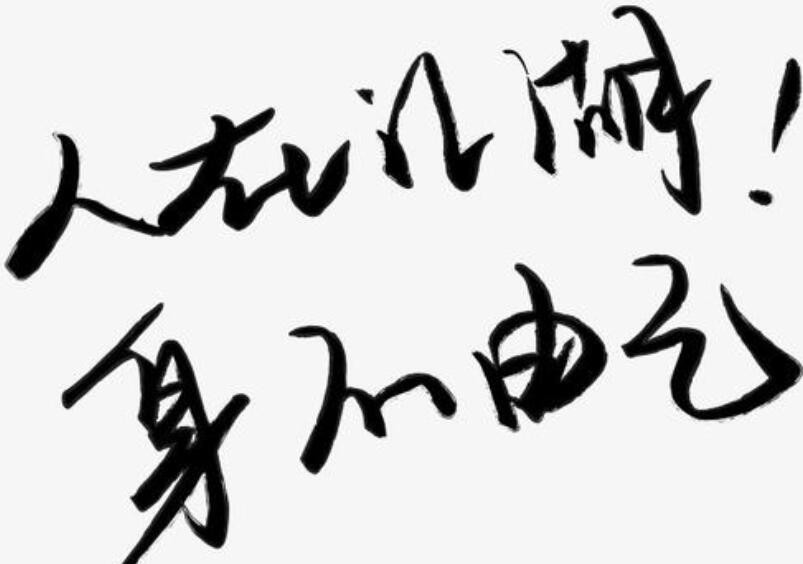 人在江湖!
身不由己